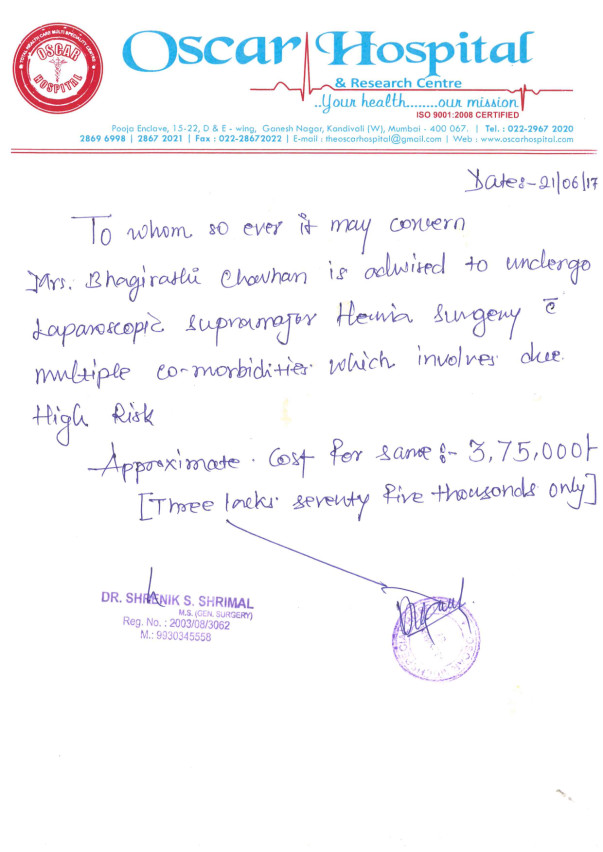 TOTAL HEALTH CARE MULTI SPECIALITY CENTRE
OSCAR
HOSPITAL
Oscar Hospital
& Research Centre
..Your health........our mission
ISO 9001:2008 CERTIFIED
Pooja Enclave, 15-22, D & E - wing, Ganesh Nagar, Kandivali (W), Mumbai - 400 067. | Tel. : 022-2967 2020
2869 6998 | 2867 2021 | Fax : 022-28672022 | E-mail : theoscarhospital@gmail.com | Web : www.oscarhospital.com
Date:- 21/06/17
To whom so ever it may concern
Mrs. Bhagirathi Chavhan is adwised to undergo
Laparoscopic supramajor Hernia surgery c̄
multiple co-morbidities which involves due
High Risk
Approximate cost for same :- 3,75,000/-
[Three lacks seventy five thousands only]
DR. SHRENIK S. SHRIMAL
M.S. (GEN. SURGERY)
Reg. No. : 2003/08/3062
M.: 9930345558